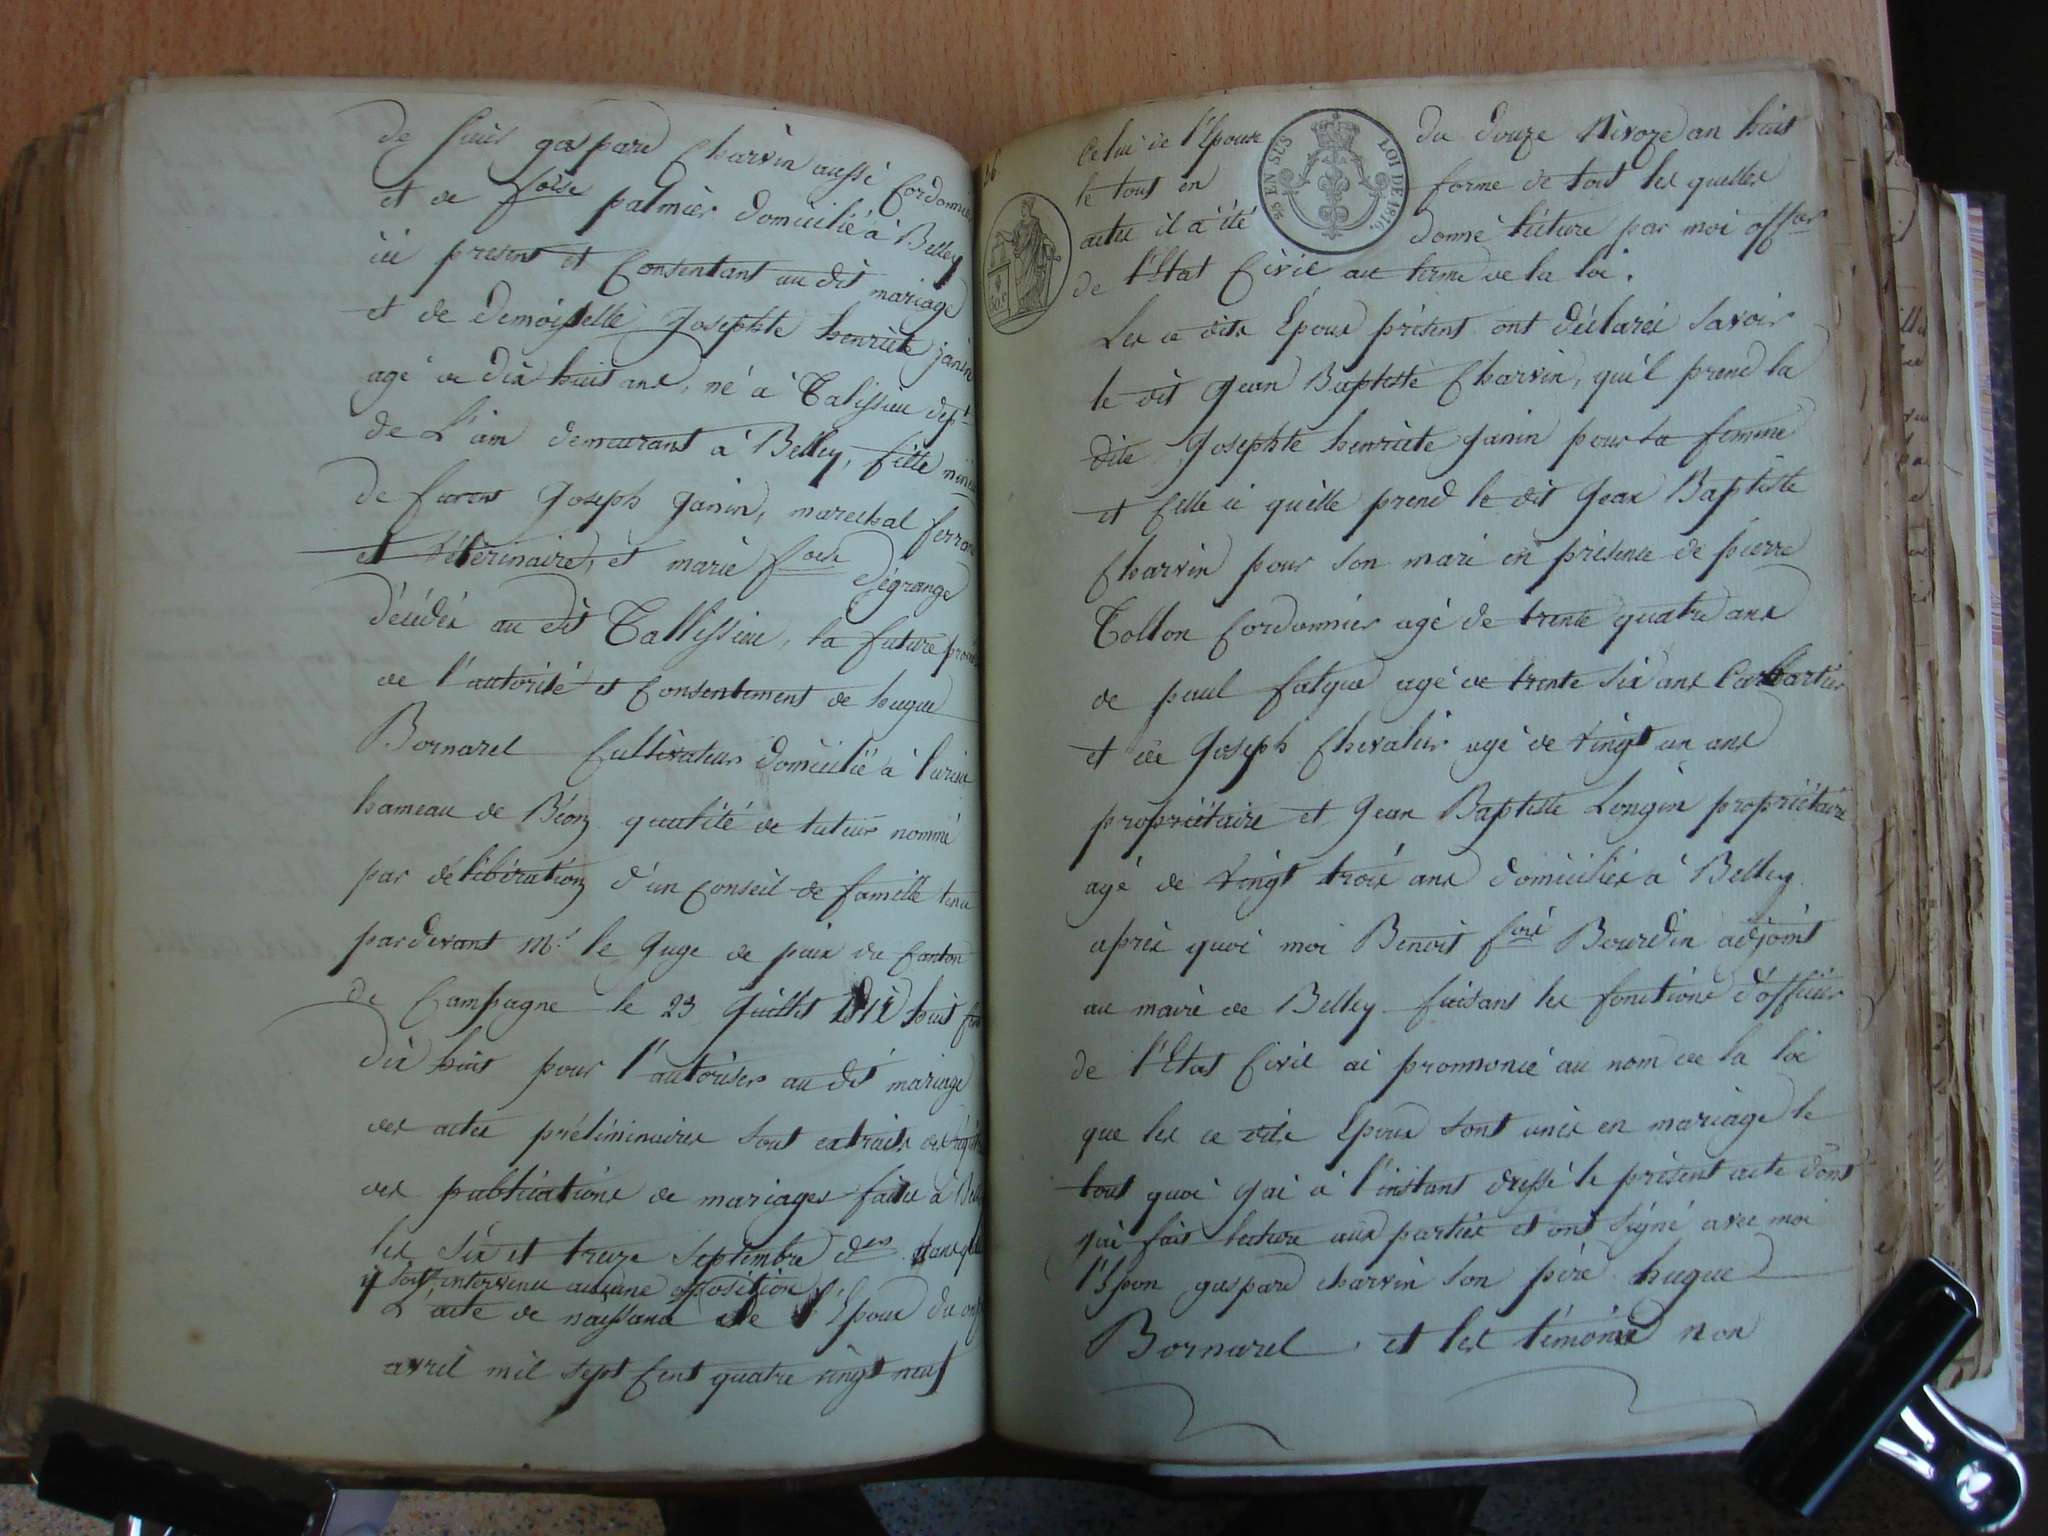 de sieur gaspard Charvin aussi Cordonnier
et de foise palmier domicilié à Belley
ici present et Consentant au dit mariage
et de Demoiselle Josephte henriete janin
agé de dix huit ans, né à Talissieu dept
de L'ain demeurant à Belley, fille mineure
de furent Joseph Janin, marechal ferrant
et Véterinaire, et marie foise Dégrange
décédés au dit Tallissieu, la future
de l'autorité et Consentement de hugue
Bornarel Cultivateur domicilié à Luirieu
hameau de Béon quatité de tuteur nommé
par délibération d'un Conseil de famille tenu
pardevant Mr le Juge de paix du Canton
de Campagne le 23 Juillet huit
dix huit pour l'autoriser au dit mariage
des actes préliminaires sont extraits des
des publications de mariages faites à Belley
les six et treize Septembre der
il soit intervenu aucune opposition
L'acte de naissance de l'Epoux du onze
avril mil sept Cent quatre vingt neuf
36
Celui de l'Epouse du douze Nivoze an huit
le tout en forme de tout les quelles
actes il a été donné lécture par moi officier
de l'Etat Civil au terme de la loi.
50 EN SUS LOI DE 1816.
Les ce dits Epoux présent ont déclarés Savoir
le dit Jean Baptiste Charvin, qu'il prend la
dite Josephte henriete Janin pour sa femme
et Celle ci quélle prend le dit Jean Baptiste
Charvin pour son mari en présence de pierre
Tollon Cordonnier agé de trente quatre ans
de paul fatque agé de trente six ans
et de Joseph Chevalier agé de vingt un ans
propriétaire et Jean Baptiste Longin propriétaire
agé de vingt trois ans domiciliés à Belley
aprés quoi moi Benoit foix Bourdin adjoint
au maire de Belley faisant les fonctions d'officier
de l'Etat Civil ai prononcé au nom de la loi
que les ce dits Epoux sont unis en mariage le
tout quoi j'ai à l'instant dressé le présent acte dont
j'ai fait lecture aux parties et ont signé avec moi
l'Epoux gaspard charvin son pére hugue
Bornarel et les témoins non